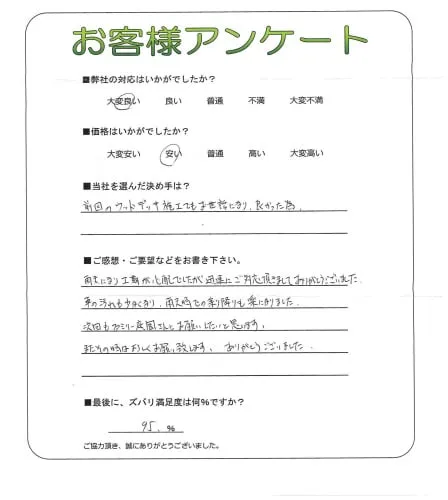 お客様アンケート
■弊社の対応はいかがでしたか？
大変良い 良い 普通 不満 大変不満
■価格はいかがでしたか？
大変安い 安い 普通 高い 大変高い
■当社を選んだ決め手は？
前回のウッドデッキ施工でもお世話になり、良かった為。
■ご感想・ご要望などをお書き下さい。
雨天になり工事が心配でしたが迅速にご対応頂きましてありがとうございました。
車の汚れも少なくなり、雨天時での乗り降りも楽になりました。
次回もファミリー庭園さんとお願いしたいと思います。
またその時はよろしくお願い致します。ありがとうございました。
■最後に、ズバリ満足度は何%ですか？
95. %
ご協力頂き、誠にありがとうございました。